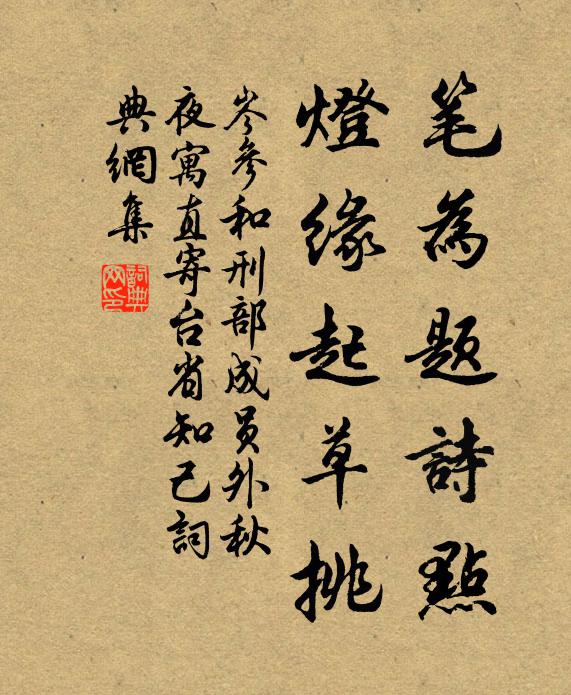 笔為題詩點
燈緣起草挑
岑參和刑部成員外秋
夜寓直寄台省知己詞
典網集
詞典網印